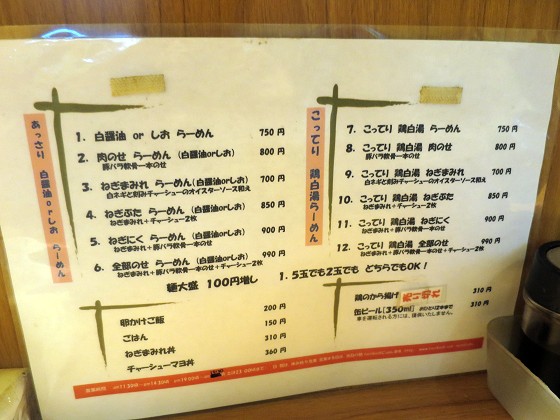 あっさり 白醤油orしお らーめん
1. 白醤油 or しお らーめん 750 円
2. 肉のせ らーめん (白醤油orしお) 800 円
豚バラ軟骨一本のせ
3. ねぎまみれ らーめん(白醤油orしお) 700 円
白ネギと刻みチャーシューのオイスターソース和え
4. ねぎぶた らーめん (白醤油orしお) 850 円
ねぎまみれ+チャーシュー2枚
5. ねぎにく らーめん (白醤油orしお) 900 円
ねぎまみれ+豚バラ軟骨一本のせ
6. 全部のせ らーめん (白醤油orしお) 990 円
ねぎまみれ+豚バラ軟骨一本のせ+チャーシュー2枚
こってり 鶏白湯らーめん
7. こってり 鶏白湯 らーめん 750 円
8. こってり 鶏白湯 肉のせ 800 円
豚バラ軟骨一本のせ
9. こってり 鶏白湯 ねぎまみれ 700 円
白ネギと刻みチャーシューのオイスターソース和え
10. こってり 鶏白湯 ねぎぶた 850 円
ねぎまみれ+チャーシュー2枚
11. こってり 鶏白湯 ねぎにく 900 円
ねぎまみれ+豚バラ軟骨一本のせ
12. こってり 鶏白湯 全部のせ 990 円
ねぎまみれ+豚バラ軟骨一本のせ+チャーシュー2枚
麺大盛 100円増し 1.5玉でも2玉でも どちらでもOK!
卵かけご飯 200 円
ごはん 150 円
ねぎまみれ丼 310 円
チャーシューマヨ丼 360 円
鶏のから揚げ 310 円
缶ビール[350ml] 310 円
車を運転される方には、提供いたしません。
営業時間